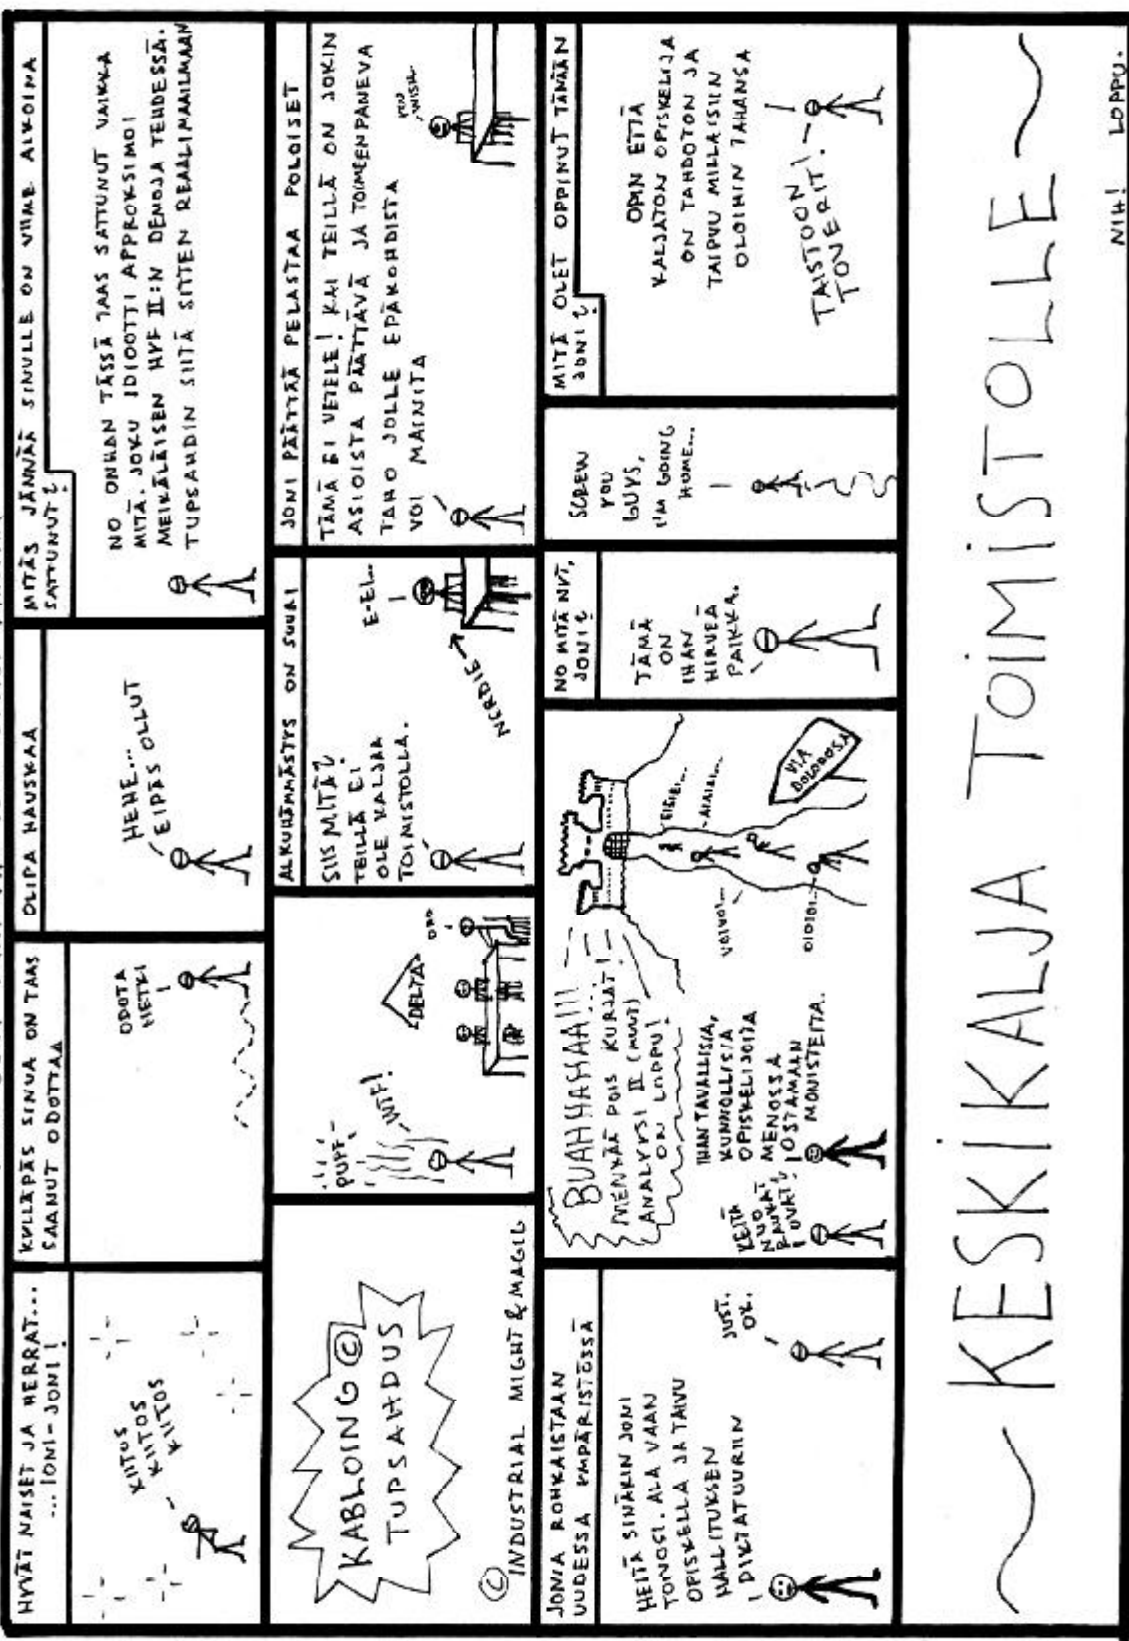 HYVÄT NAISET JA HERRAT...
...IONI-JONI!
KIITOS
KIITOS
KIITOS
KYLLÄPÄS SINUA ON TAAS
SAANUT ODOTTAA
ODOTA
HETKI
OLIPA HAUSKAA
HEHE...
EIPÄS OLLUT
MITÄS JÄNNÄÄ SINULLE ON VIIME AIKOINA
SATTUNUT?
NO ONHAN TÄSSÄ TAAS SATTUNUT VAIKKA
MITÄ. JOKU IDIOOTTI APPROKSIMOI
MEIKÄLÄISEN HYF II:N DEMOJA TEHDESSÄ.
TUPSAHDIN SIITÄ SITTEN REAALIMAAILMAAN
KABLOING ©
TUPSAHDUS
© INDUSTRIAL MIGHT & MAGIC
PUFF
WTF!
DELTA
ALKUHÄMMÄSTYS ON SUURI
SIIS MITÄ?
TEILLÄ EI
OLE KALJAA
TOIMISTOLLA.
E-EI...
NERDIE
JONI PÄÄTTÄÄ PELASTAA POLOISET
TÄMÄ EI VETELE! KAI TEILLÄ ON JOKIN
ASIOISTA PÄÄTTÄVÄ JA TOIMEENPANEVA
TAHO JOLLE EPÄKOHDISTA
VOI MAINITA
YOU
WISH..
JONIA ROHKAISTAAN
UUDESSA YMPÄRISTÖSSÄ
HEITÄ SINÄKIN JONI
TOIVOSI. ALA VAAN
OPISKELLA JA TAIVU
HALLITUKSEN
DIKTATUURIIN
JUST.
OK.
BUAHHAHAA!!!
MENKÄÄ POIS KURJAT!
ANALYYSI II (MUUT)
ON LOPPU!
KEITÄ
NUO
RAUKAT
OVAT?
IHAN TAVALLISIA,
KUNNOLLISIA
OPISKELIJOITA
MENOSSA
OSTAMAAN
MONISTEITA.
VOIVOI...
OIOIOI...
EIEIEI...
AIAIAI...
VIA
DOLOROSA
NO MITÄ NYT,
JONI?
TÄMÄ
ON
IHAN
HIRVEÄ
PAIKKA.
SCREW
YOU
GUYS,
I'M GOING
HOME...
MITÄ OLET OPPINUT TÄNÄÄN
JONI?
OPIN ETTÄ
KALJATON OPISKELIJA
ON TAHDOTON JA
TAIPUU MILLAISIIN
OLOIHIN TAHANSA
TAISTOON!
TOVERIT!
~ KESKIKALJA TOIMISTOLLE ~
NIH! LOPPU.